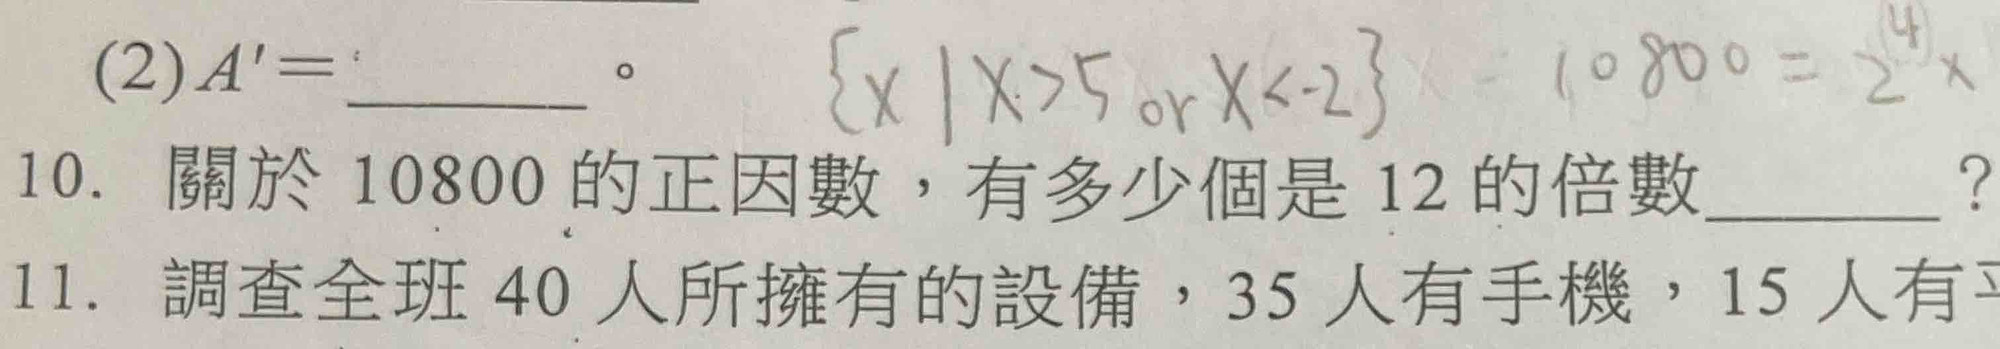 (2) A′=______。 {x | x>5 or x<-2} 10800 = 2^4 x
10. 關於 10800 的正因數，有多少個是 12 的倍數______？
11. 調查全班 40 人所擁有的設備，35 人有手機，15 人有